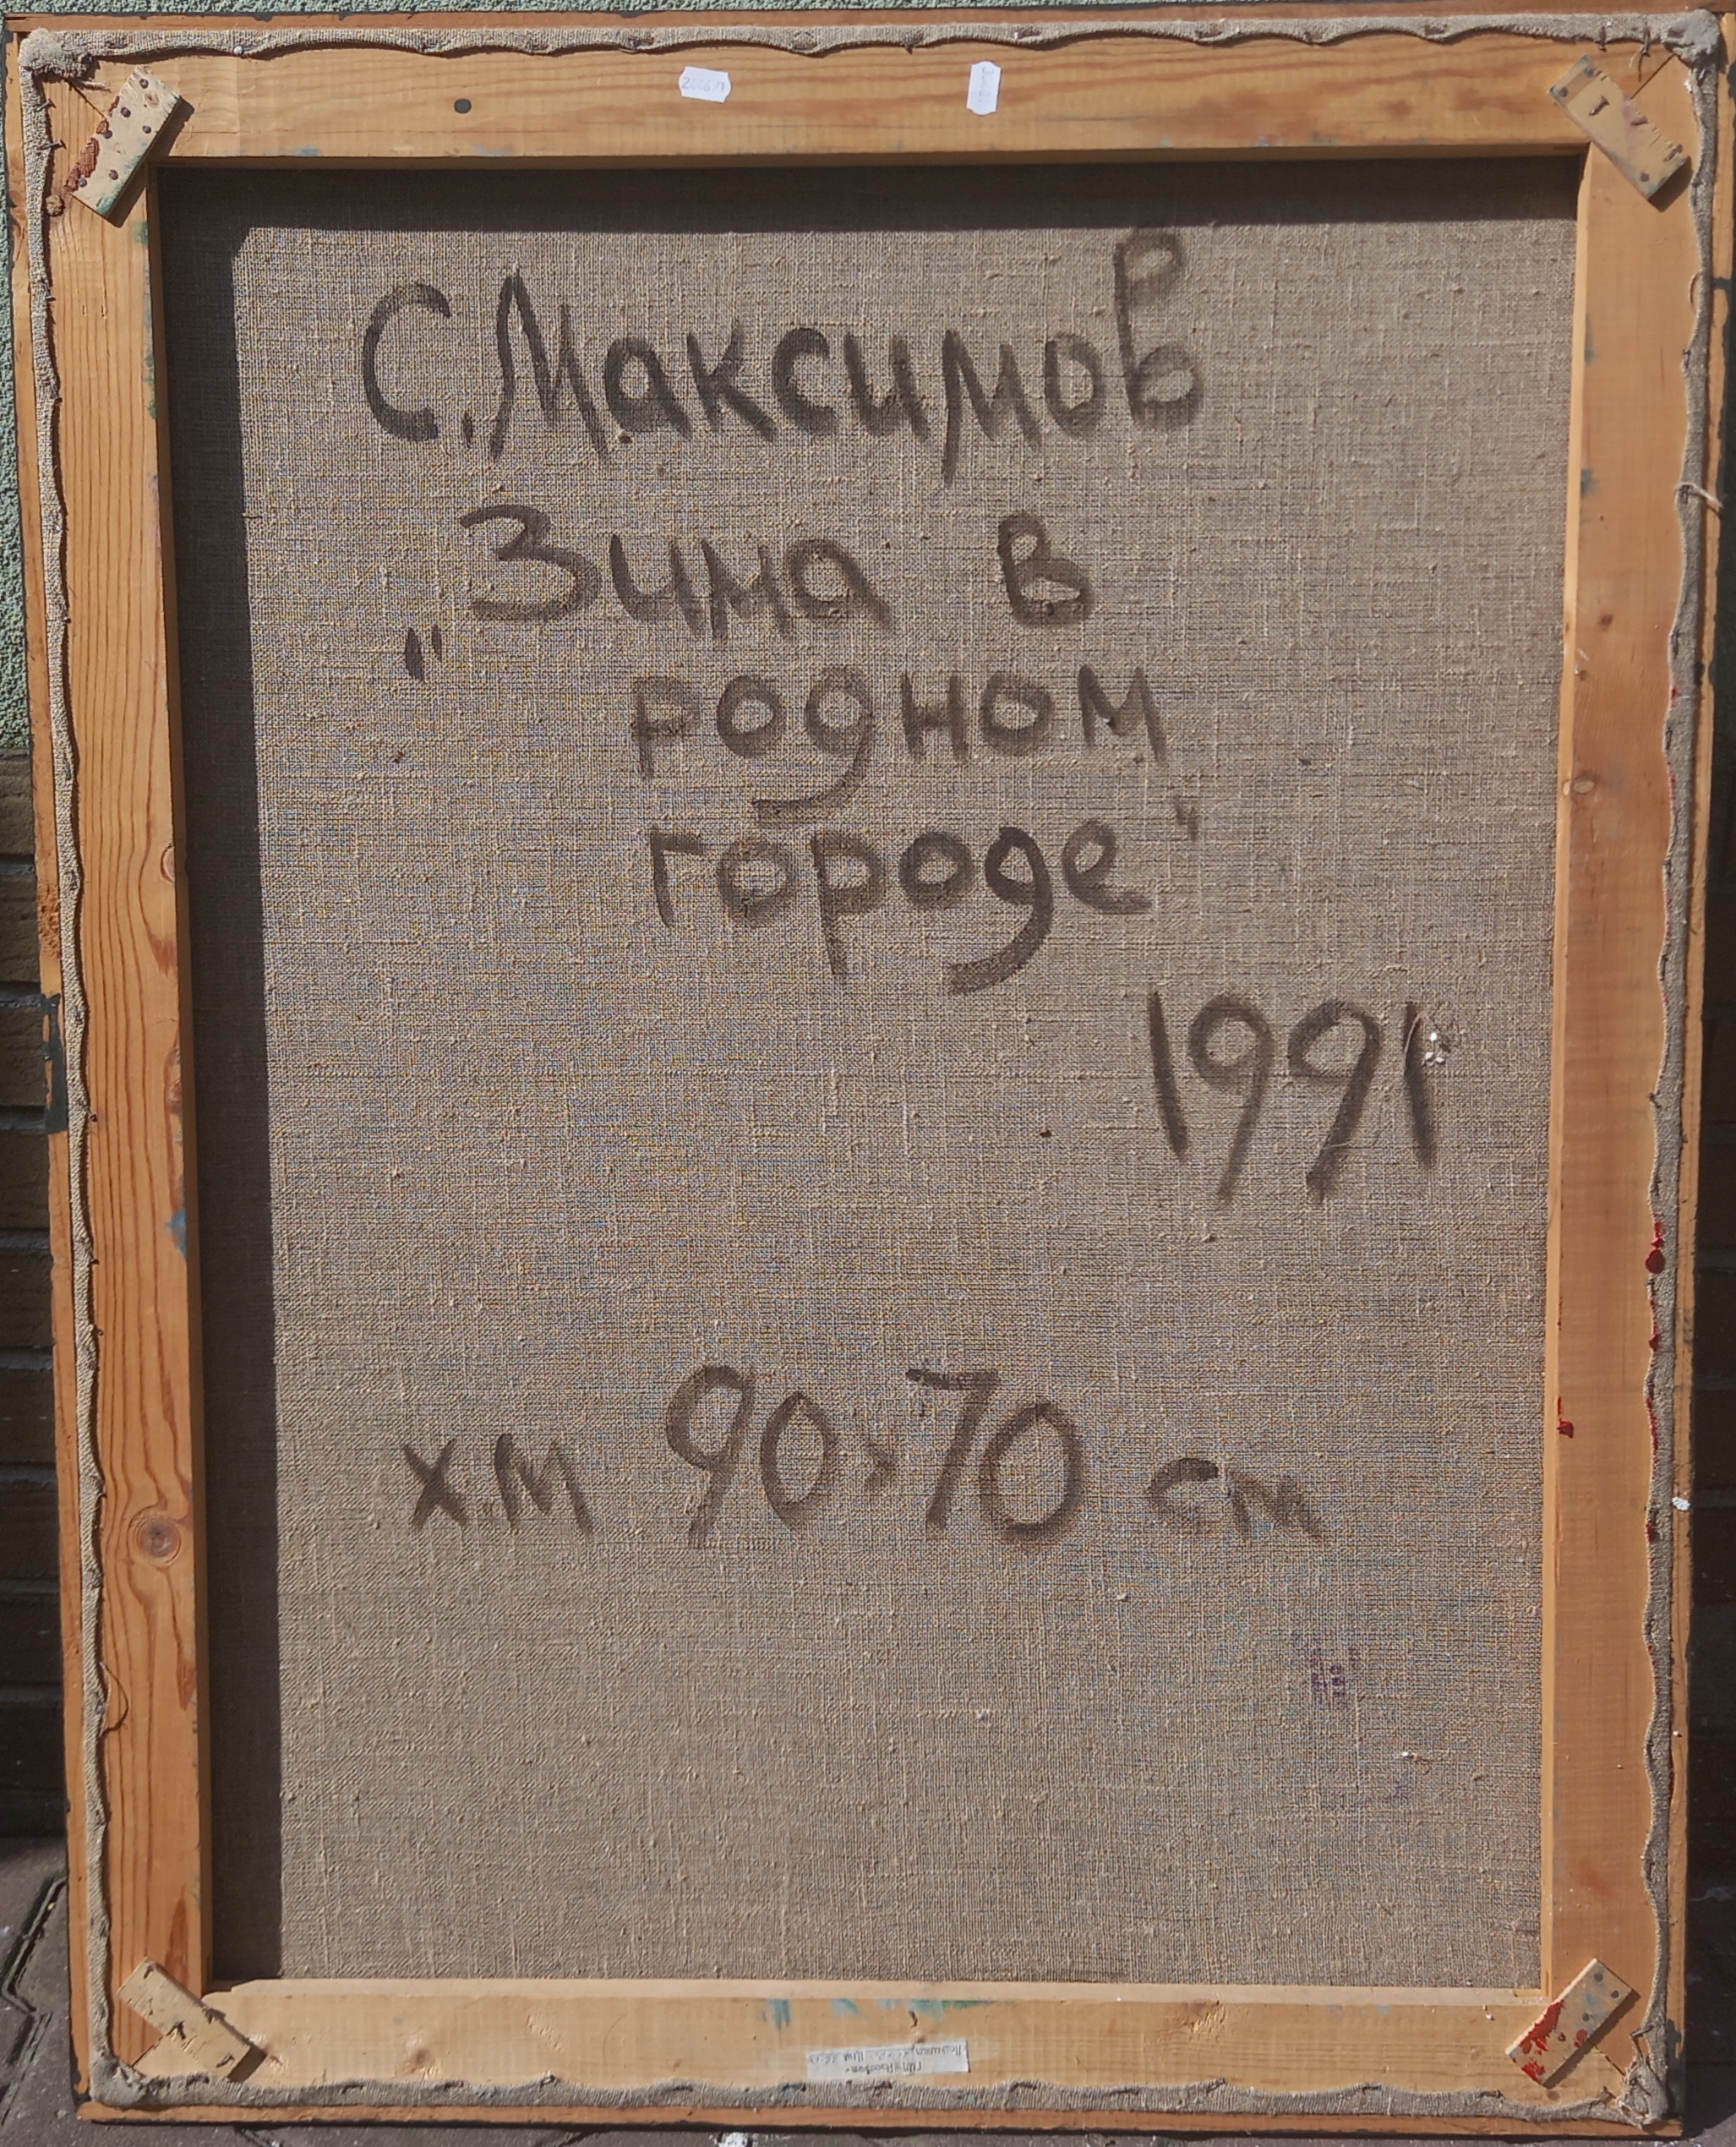 С. Максимов
"Зима в
родном
городе"
1991
х.м 90×70 см